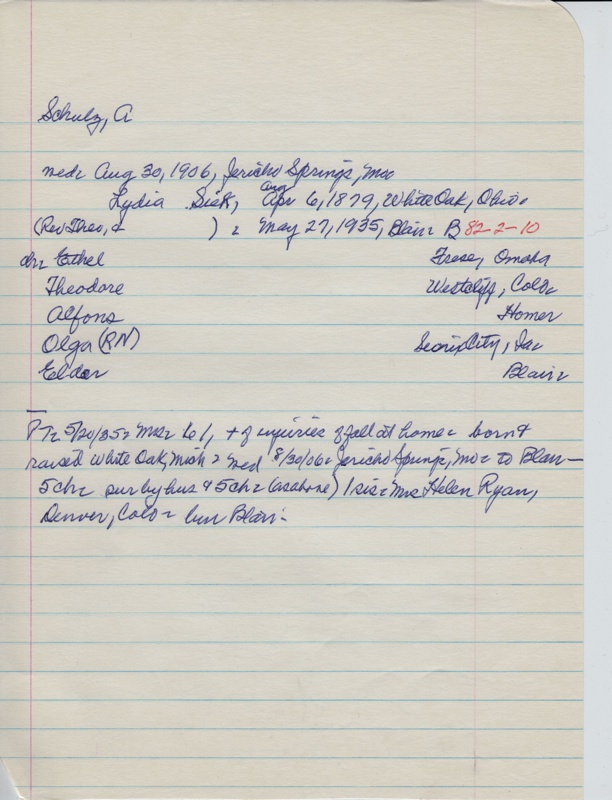 Schulz, A
med: Aug 30, 1906, Jericho Springs, Mo:
Lydia Sick, Aug Apr 6, 1879, White Oak, Ohio:
(Rev Theo, & ) : May 27, 1935, Blair: B 82-2-10
ch: Ethel Frese, Omaha
Theodore Westcliff, Colo:
Alfons Homer
Olga (RN) Sioux City, Ia:
Elder Blair:
PT: 5/30/35: Mrs: + of injuries of fall at home: born &
raised White Oak, Mich: med 8/30/06: Jericho Springs, Mo: to Blair—
5ch: sur by hus & 5ch: (as above) 1 sis: Mrs Helen Ryan,
Denver, Colo: bur Blair: